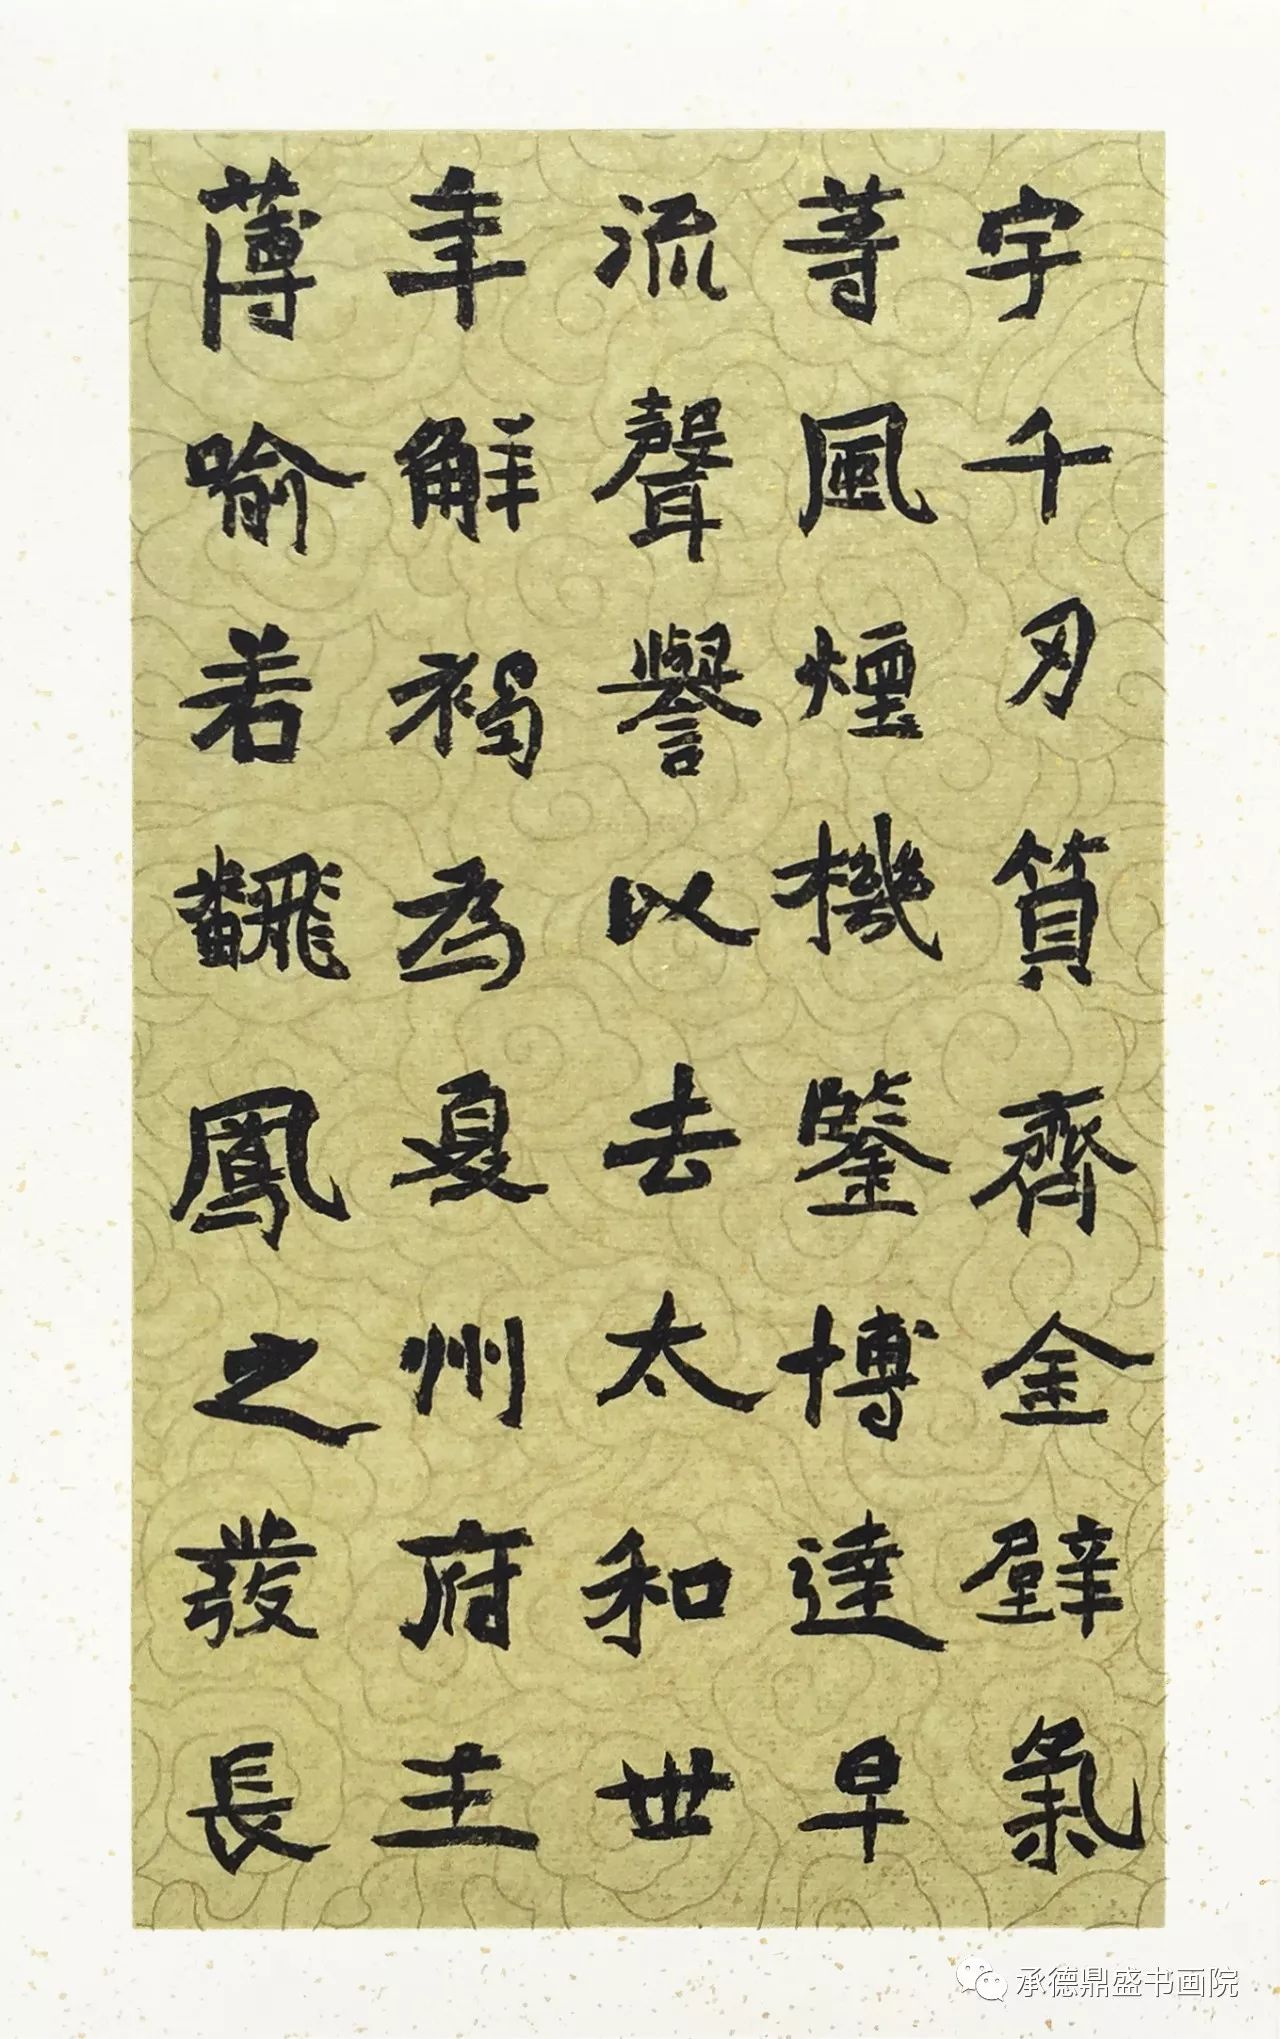 宇千刃質齊金璧氣
等風煙機鑒博達早
流聲譽以去太和世
年解褐為夏州府主
薄喻若飜鳳之發長
承德鼎盛书画院